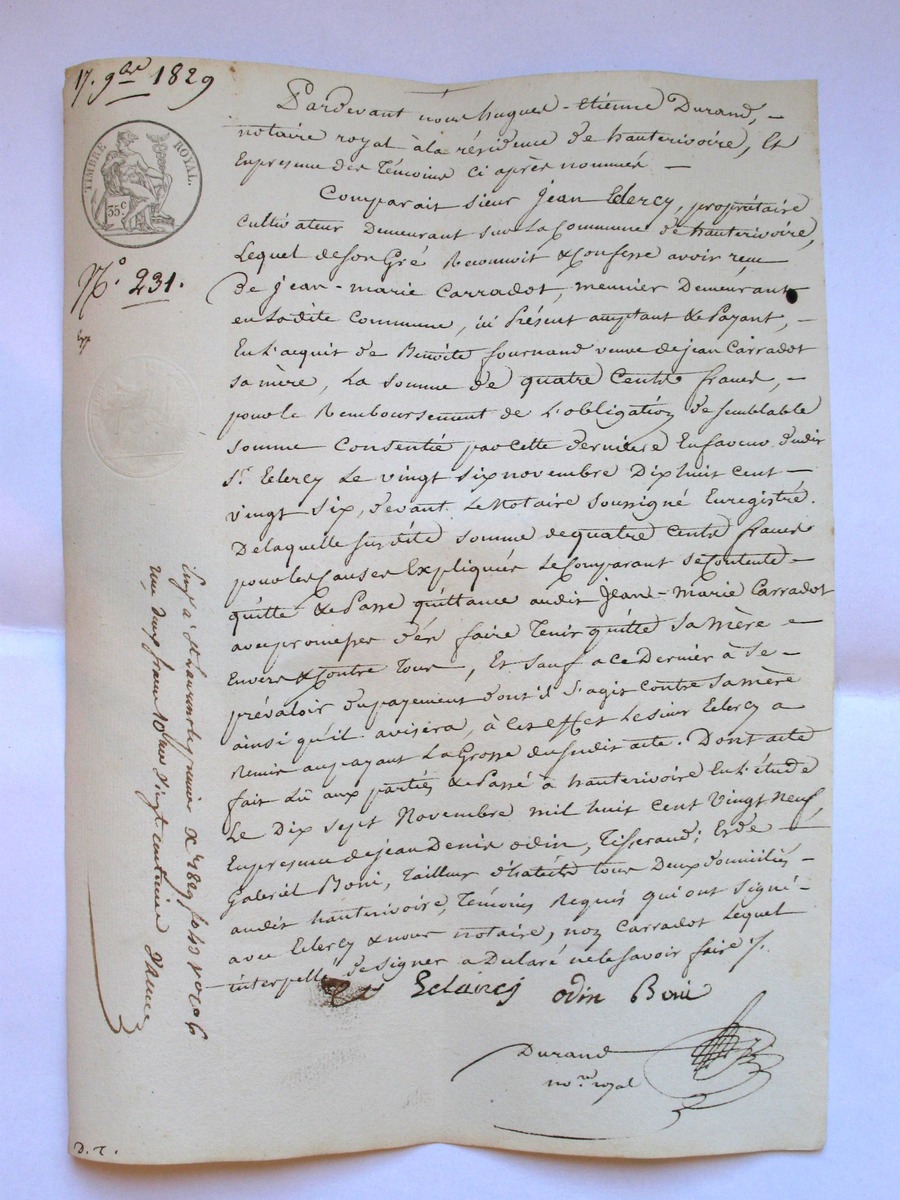 17. 9bre 1829
TIMBRE ROYAL.
35 c
N.o 231.
Pardevant nous hugues-étienne Durand, –
notaire royal à la résidence de hauterivoire, Et
En presence des Témoins ci après nommés –
Comparait sieur Jean Eclercy, propriétaire
Cultivateur Demeurant sur La Commune de hauterivoire,
Lequel de son Gré Reconnoit & Confesse avoir reçu
de Jean-marie Carradot, meunier Demeurant
en Ladite Commune, ici Présent acceptant & Payant, –
En L'acquit de Benoite fournand veuve de jean Carradot
sa mère, La somme de quatre Cents francs, –
pour le Remboursement de L'obligation de semblable
somme Consentie par cette dernière En faveur dudit
Sr. Eclercy Le vingt six novembre Dix huit cent –
vingt six, devant Le Notaire soussigné Enregistré.
De laquelle susdite somme de quatre Cents francs
pour les Causes Expliquées Le Comparant se Contente –
quitte & Passe quittance audit Jean-Marie Carradot
avec promesse d'en faire Tenir quitte sa Mère –
Envers & Contre Tous, Et sauf a ce Dernier à se –
prévaloir du payement dont il s'agit contre sa mère
ainsi qu'il avisera, à Cet effet Le sieur Eclercy a
Remis au payant La Grosse du susdit acte. Dont acte
fait Lû aux parties & Passé à hauterivoire En L'étude
Le Dix sept Novembre mil huit cent Vingt Neuf,
En presence de jean Denis odin, Tisserand; Et de –
Gabriel Boni, Tailleur d'habits tous Deux domiciliés –
audit hauterivoire, Témoins Requis qui ont signé –
avec Eclercy & nous notaire, non Carradot Lequel
interpellé de signer a Déclaré ne le savoir faire ./.
Eclaircj odin Boni
Durand
nore royal
1829 fo 43
reçu deux francs vingt centimes
D. T.